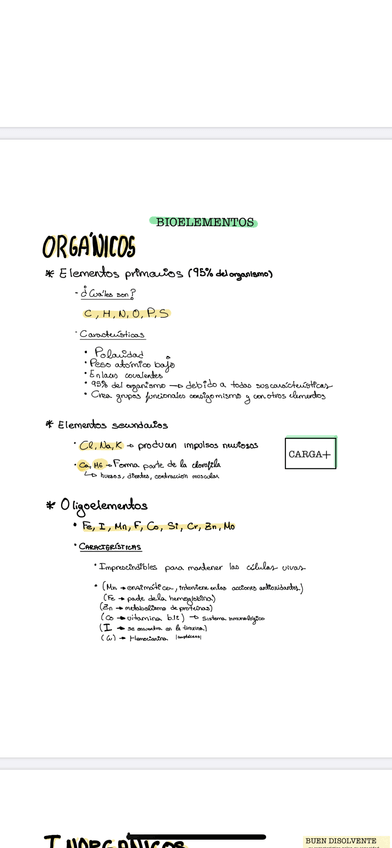 BIOELEMENTOS
ORGÁNICOS
* Elementos primarios (95% del organismo)
- ¿Cuáles son?
C, H, N, O, P, S
· Características
• Polaridad
• Peso atómico bajo
• Enlaces covalentes
• 95% del organismo → debido a todas sus características
• Crea grupos funcionales consigo mismo y con otros elementos
* Elementos secundarios
• Cl, Na, K → producen impulsos nerviosos
CARGA+
• Ca, MG → Forma parte de la clorofila
↳ huesos, dientes, contracción muscular
* Oligoelementos
• Fe, I, Mn, F, Co, Si, Cr, Zn, Mo
• CARACTERÍSTICAS
• Imprescindibles para mantener las células vivas
• (Mn → enzimático, interviene en las acciones antioxidantes.)
(Fe → parte de la hemoglobina)
(Zn → metabolismo de proteínas)
(Co → vitamina b12) → sistema inmunológico
(I → se encuentra en la tiroxina)
→ Hemocianina
INORGÁNICOS
BUEN DISOLVENTE